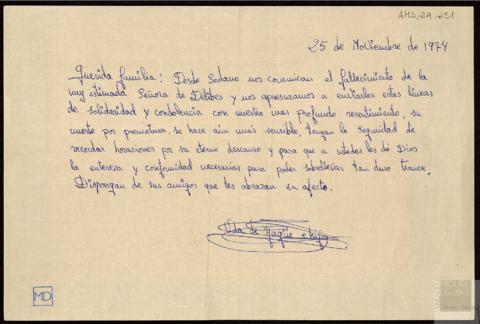 AMD,24,251
25 de Noviembre de 1974
Querida familia: Desde Sedano nos comunican el fallecimiento de la
muy estimada Señora de Delibes y nos apresuramos a enviarles estas lineas
de solidaridad y condolencia con nuestro mas profundo resentimiento, su
muerte por prematura, se hace aún más sensible, tengan la seguridad de
recordar horaciones por su eterno descanso y para que a ustedes les dé Dios
la entereza y conformidad necesarias para poder sobrellevar tan duro trance.
Dispongan de sus amigos que les abrazan en afecto.
Vda de Yagüe e hijos
MD